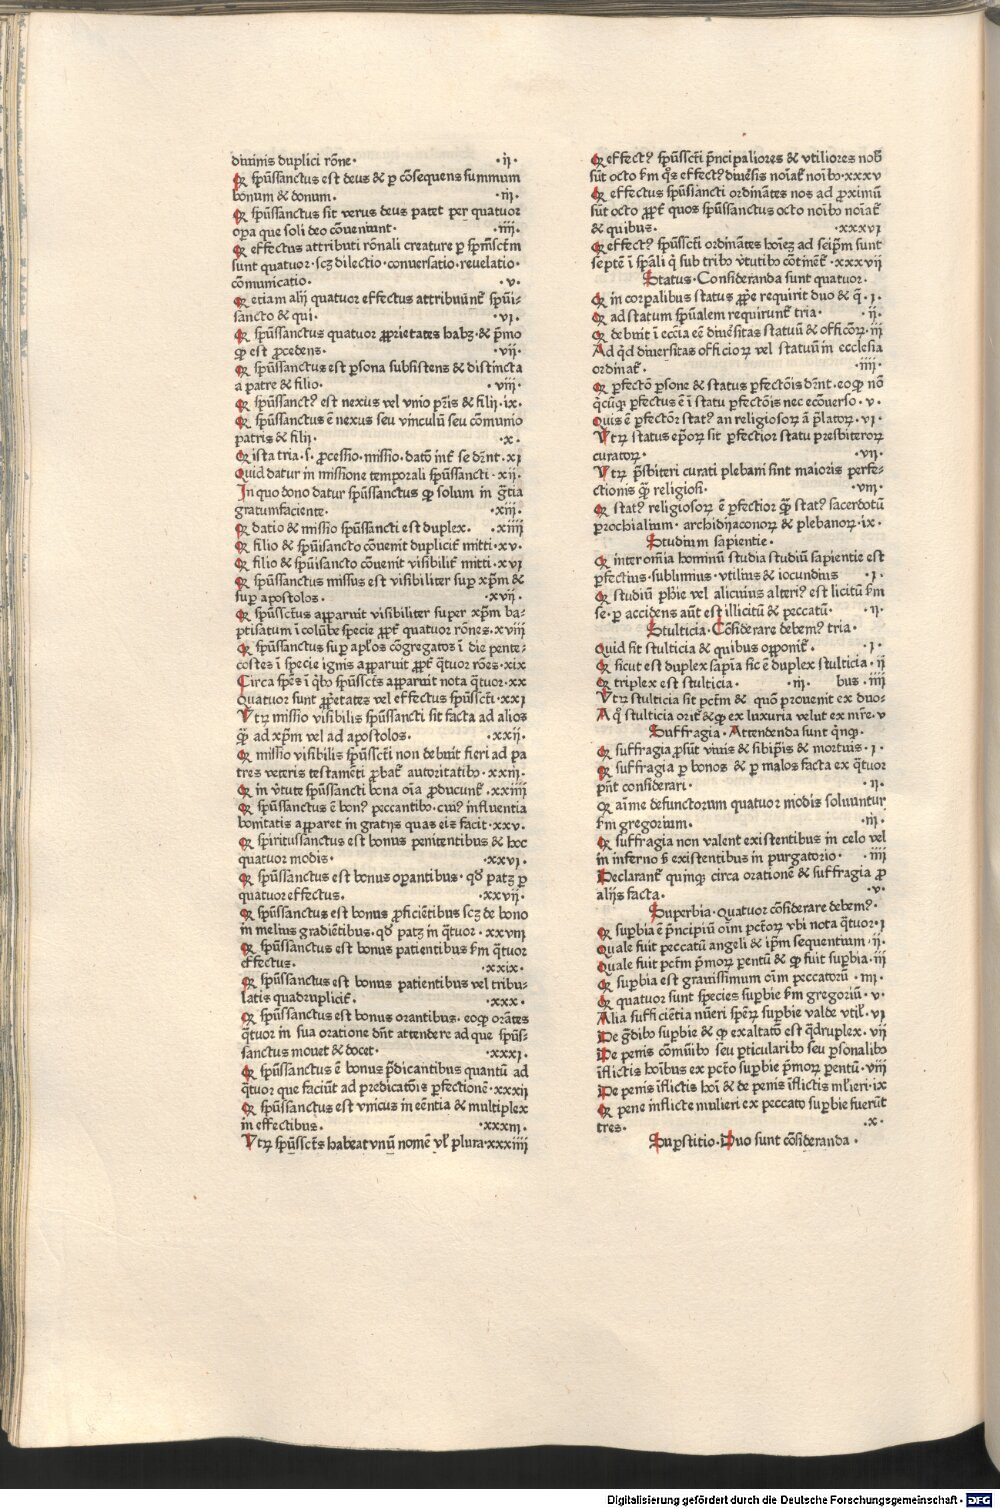 diuinis duplici rōne· ·ii·
Qꝛ spūssanctus est deus & ꝑ cōsequens summum
bonum & donum· ·iii·
Qꝛ spūssanctus sit verus deus patet per quatuor
oꝑa que soli deo cōueniunt· ·iiii·
Qꝛ effectus attributi rōnali creature ꝑ spm̄sctm̄
sunt quatuor·scꝫ dilectio·conuersatio·reuelatio·
cōmunicatio· ·v·
Qꝛ etiam alij quatuor effectus attribuūnt᷑ spūi-
sancto & qui· ·vi·
Qꝛ spūssanctus quatuor ꝓprietates habꝫ·& pr̄mo
ꝙ est ꝓcedens· ·vii·
Qꝛ spūssanctus est ꝑsona subsistens & distincta
a patre & filio· ·viii·
Qꝛ spūssanctꝰ est nexus vel vnio pr̄is & filij·ix·
Qꝛ spūssanctus ē nexus seu vinculū seu cōmunio
patris & filij· ·x·
Qꝛ ista tria·s·ꝓcessio·missio·datō int᷑ se dr̄nt·xi
Quid datur in missione temporali spūssancti·xii·
In quo dono datur spūssanctus ꝙ solum in gr̄tia
gratumfaciente· ·xiii·
Qꝛ datio & missio spūssancti est duplex· ·xiiii
Qꝛ filio & spūisancto cōuenit duplicit᷑ mitti·xv·
Qꝛ filio & spūisancto cōuenit visibilit᷑ mitti·xvi
Qꝛ spūssanctus missus est visibiliter suꝑ xp̄m &
suꝑ apostolos· ·xvii·
Qꝛ spūssctūs apparuit visibiliter super xp̄m ba-
ptisatum ī colūbe specie ꝓpt᷑ quatuor rōnes·xviii
Qꝛ spūssanctus suꝑ apl'os cōgregatos ī die pente-
costes ī specie ignis apparuit ꝓpt᷑ q̄tuor rōes·xix
Circa spēs ī qͥbꝫ spūsscts apparuit nota q̄tuor·xx
Quatuor sunt ꝓpetates vel effectus spūsscti·xxi
Vtꝝ missio visibilis spūssancti sit facta ad alios
qꝫ ad xp̄m vel ad apostolos· ·xxii·
Qꝛ missio visibilis spūsscti non debuit fieri ad pa
tres veteris testamēti ꝓbat᷑ autoritatibꝫ·xxiii·
Qꝛ in v̄tute spūssancti bona oīa ꝓducunt᷑·xxiiii
Qꝛ spūssanctus ē bonꝰ peccantibꝫ·cuiꝰ influentia
bonitatis apparet in gratijs quas eis facit·xxv·
Qꝛ spiritussanctus est bonus penitentibus & hoc
quatuor modis· ·xxvi·
Qꝛ spūssanctus est bonus oꝑantibus·qd̄ patꝫ ꝑ
quatuor effectus· ·xxvii·
Qꝛ spūssanctus est bonus ꝓficiētibus scꝫ de bono
in melius gradiētibus·qd̄ patꝫ in q̄tuor·xxviii
Qꝛ spūssanctus est bonus patientibus fm̄ q̄tuor
effectus· ·xxix·
Qꝛ spūssanctus est bonus patientibus vel tribu-
latis quadruplicit᷑· ·xxx·
Qꝛ spūssanctus est bonus orantibus·eoꝙ orātes
q̄tuor in sua oratione dn̄t attendere ad que spūs-
sanctus mouet & docet· ·xxxi·
Qꝛ spūssanctus ē bonus p̄dicantibus quantū ad
q̄tuor que faciūt ad predicatōis ꝑfectionē·xxxii
Qꝛ spūssanctus est vnicus in eēntia & multiplex
in effectibus· ·xxxiii·
Vtꝝ spūsscts habeat vnū nomē vl' plura·xxxiiii
Qꝛ effectꝰ spūsscti pr̄ncipaliores & vtiliores nob̄
sūt octo fm̄ q̄s effectꝰ diuēsis noīat᷑ noībꝫ·xxxv
Qꝛ effectus spūssancti ordināntes nos ad ꝓximū
sūt octo ꝓpt᷑ quos spūssanctus octo noībꝫ noīat᷑
& quibus· ·xxxvi·
Qꝛ effectꝰ spūsscti ordināntes hoīeꝫ ad seipm̄ sunt
septē ī sp̄ali q̄ sub tribꝫ v̄tutibꝫ cōtinēt᷑·xxxvii
Status·Consideranda sunt quatuor·
Qꝛ in corꝑalibus status ꝓpe requirit duo & q̄·i·
Qꝛ ad statum spūalem requirunt᷑ tria· ·ii·
Qꝛ debuit ī eccīa eē diuēsitas statuū & officoꝝ·iii
Ad qͥd diuersitas officioꝝ vel statuū in ecclesia
ordinat᷑· ·iiii·
Qꝛ ꝑfectō ꝑsone & status ꝑfectōis dr̄nt·eoꝙ nō
qͥcūqꝫ ꝑfectus ē ī statu ꝑfectōis nec ecōuerso·v·
Quis ē ꝑfectoꝝ statꝰ an religiosoꝝ ā p̄latoꝝ·vi·
Vtꝝ status ep̄oꝝ sit ꝑfectior statu presbiteroꝝ
curatoꝝ· ·vii·
Vtꝝ p̄sbiteri curati plebani sint maioris ꝑfe-
ctionis qꝫ religiosi· ·viii·
Qꝛ statꝰ religiosoꝝ ē ꝑfectior qꝫ statꝰ sacerdotū
ꝑrochialium·archidijaconoꝝ & plebanoꝝ·ix·
Studium sapientie·
Qꝛ inter om̄ia hominū studia studiū sapientie est
ꝑfectius·sublimius·vtilius & iocundius ·i·
Qꝛ studiū ph̄ie vel alicuius alteriꝰ est licitū fm̄
se·ꝑ accidens aūt est illicitū & peccatū· ·ii·
Stulticia·Cōsiderare debemꝰ tria·
Quid sit stulticia & quibus opponit᷑· ·i·
Qꝛ sicut est duplex sapīa sic ē duplex stulticia·ii
Qꝛ triplex est stulticia· ·iii· bus·iiii
Vtꝝ stulticia sit pctm̄ & quō ꝓuenit ex duo-
A qͥ stulticia orit᷑ &ꝙ ex luxuria velut ex mr̄e·v
Suffragia·Attendenda sunt q̄nqꝫ·
Qꝛ suffragia ꝓsūt viuis & sibiip̄is & mortuis·i·
Qꝛ suffragia ꝑ bonos & ꝑ malos facta ex q̄tuor
pn̄t considerari· ·ii·
Qꝛ aīme defunctorum quatuor modis soluuntur
fm̄ gregorium· ·iii·
Qꝛ suffragia non valent existentibus in celo vel
in inferno s̄ existentibus in purgatorio· ·iiii
Declarant᷑ quinqꝫ circa orationē & suffragia ꝑ
alijs facta· ·v·
Superbia·Quatuor cōsiderare debemꝰ·
Qꝛ suꝑbia ē pr̄ncipiū oīm pctōꝝ vbi nota q̄tuor·i
Quale fuit peccatū angeli & ip̄m sequentium·ii·
Quale fuit pctm̄ pr̄moꝝ ꝑentū & ꝙ fuit suꝑbia·iii
Qꝛ suꝑbia est grauissimum oīm peccatoꝝ·iiii·
Qꝛ quatuor sunt species suꝑbie fm̄ gregoriū·v·
Alia sufficiētia nūeri spēꝝ suꝑbie valde vtil'·vi
De gͣdibꝫ suꝑbie & ꝙ exaltatō est q̄druplex·vii
De penis cōmūibꝫ seu ꝑticularibꝫ seu ꝑsonalibꝫ
īflictis hoībus ex pctō suꝑbie pr̄moꝝ ꝑentū·viii
De penis īflictis hoī & de penis īflictis ml'ieri·ix
Qꝛ pene inflicte mulieri ex peccato suꝑbie fuerūt
tres· ·x·
Suꝑstitio·Duo sunt cōsideranda·
Digitalisierung gefördert durch die Deutsche Forschungsgemeinschaft - DFG